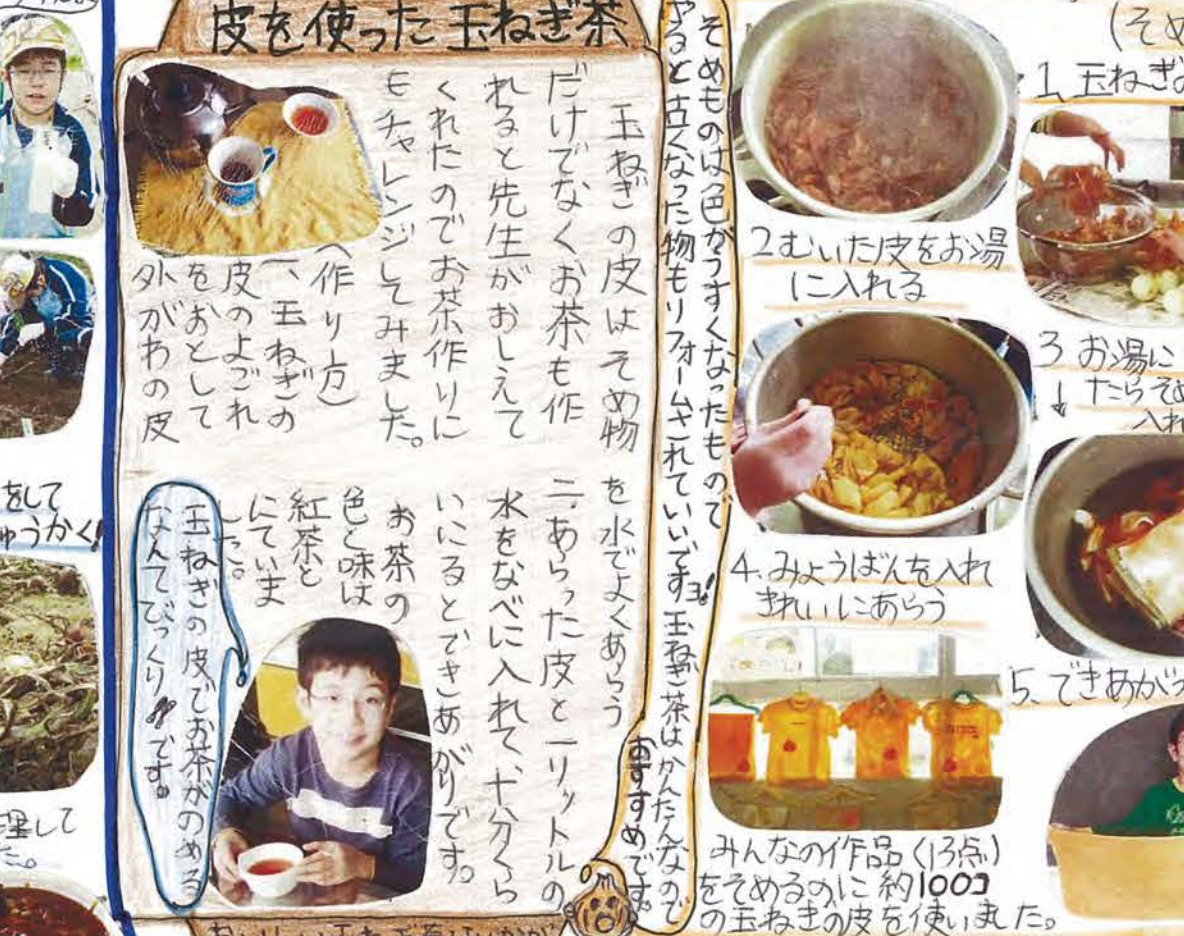 皮を使った玉ねぎ茶
玉ねぎの皮はそめ物
だけでなくお茶も作
れると先生がおしえて
くれたのでお茶作りに
モチャレンジしてみました。
(作り方)
一、玉ねぎの
皮のよごれ
をおとして
外がわの皮
を水でよくあらう
二、あらった皮と一リットルの
水をなべに入れて、十分くら
いにるとできあがりです。
お茶の
色と味は
紅茶と
にていま
した。
玉ねぎの皮でお茶がのめる
なんてびっくり!!です。
そめものは色がうすくなったもので
やると古くなった物もリフォームされていいですヨ!玉ねぎ茶はかんたんなので
おすすめです。
1、玉ねぎ
2むいた皮をお湯
に入れる
3 お湯に
たらそめ
入れ
4、みょうばんを入れ
きれいにあらう
5、できあがり
みんなの作品(13点)
をそめるのに約100コ
の玉ねぎの皮を使いました。
をして
ゅうかく!
理して
た。